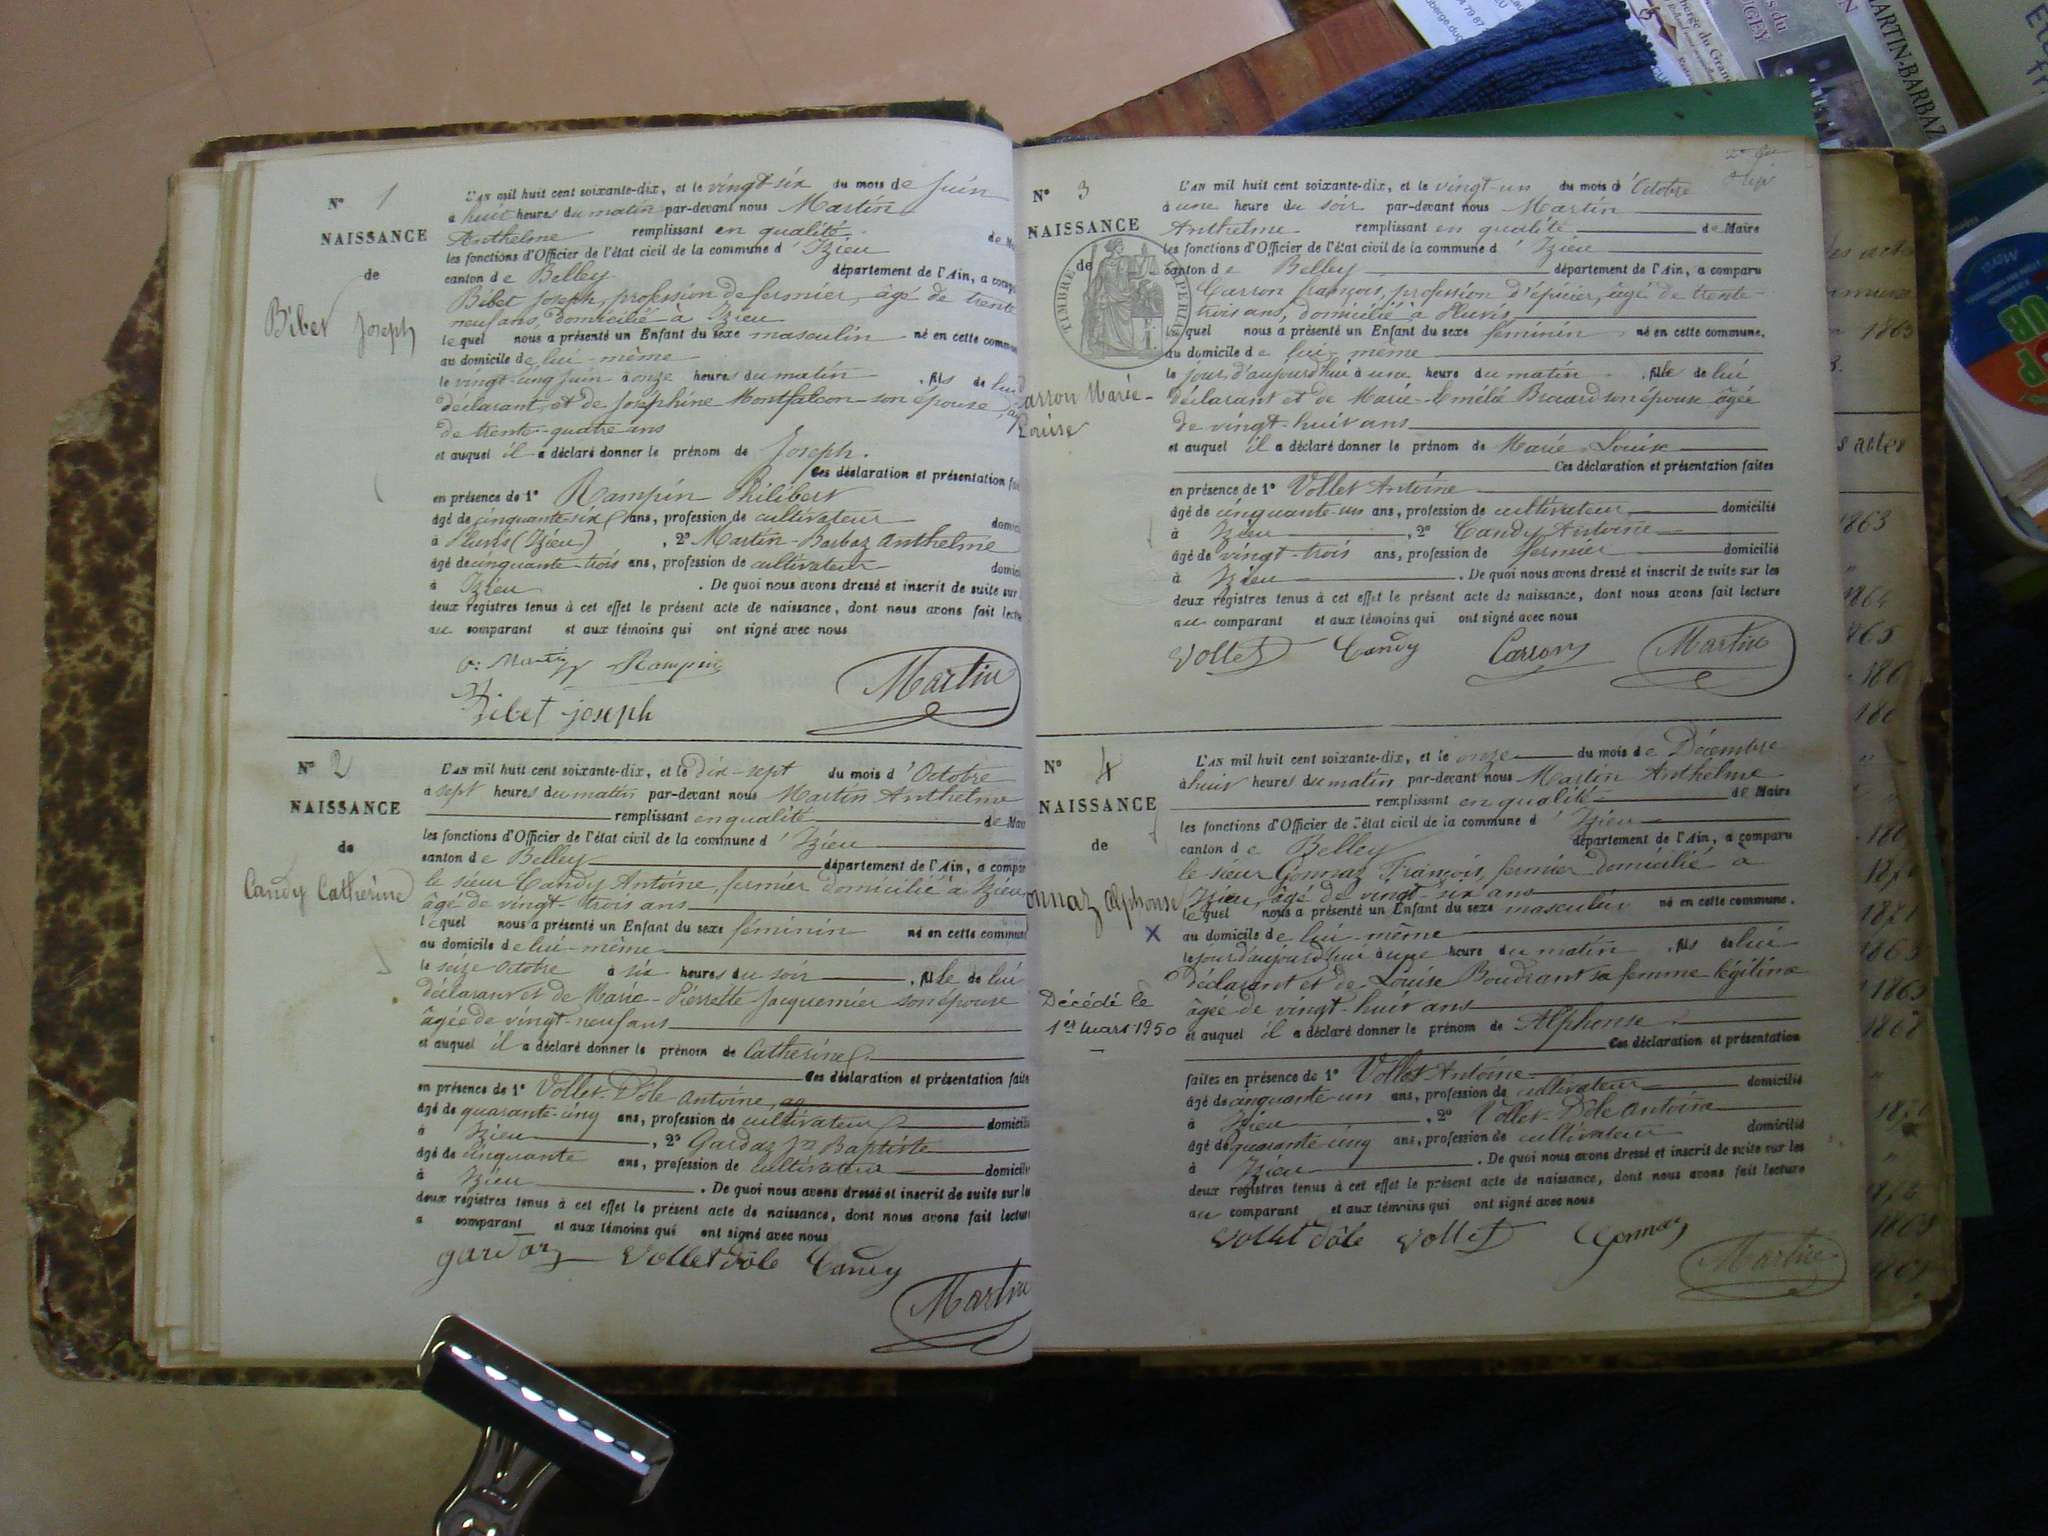 N° 1
NAISSANCE
de
Bibet Joseph
L'AN mil huit cent soixante-dix, et le vingt-six du mois de Juin
à huit heures du matin par-devant nous Martin
Anthelme remplissant en qualité de
les fonctions d'Officier de l'état civil de la commune d'Izieu
canton de Belley département de l'Ain, a
Bibet Joseph, profession de fermier, âgé de trente
neuf ans, domicilié à Izieu
lequel nous a présenté un Enfant du sexe masculin né en cette
au domicile de lui-même
le vingt-cinq juin à onze heures du matin, fils de lui
déclarant, et de Joséphine Montfalcon son épouse
de trente-quatre ans
et auquel il a déclaré donner le prénom de Joseph.
Ces déclaration et présentation
en présence de 1° Rampin Philibert
âgé de cinquante-six ans, profession de cultivateur
à Pluvis (Izieu), 2° Martin-Barbaz Anthelme
âgé de cinquante-trois ans, profession de cultivateur
à Izieu. De quoi nous avons dressé et inscrit de suite sur
deux registres tenus à cet effet le présent acte de naissance, dont nous avons fait
au comparant et aux témoins qui ont signé avec nous
Martin Rampin
Martin
Bibet joseph
N° 2
NAISSANCE
de
Candy Catherine
L'AN mil huit cent soixante-dix, et le dix-sept du mois d'Octobre
à sept heures du matin par-devant nous Martin Anthelme
remplissant en qualité de
les fonctions d'Officier de l'état civil de la commune d'Izieu
canton de Belley département de l'Ain, a
le sieur Candy Antoine, fermier domicilié à Izieu
âgé de vingt-trois ans
lequel nous a présenté un Enfant du sexe féminin né en cette
au domicile de lui-même
le seize Octobre à six heures du soir, fille de lui
déclarant et de Marie-Pierrette Jacquemier son épouse
âgée de vingt-neuf ans
et auquel il a déclaré donner le prénom de Catherine.
Ces déclaration et présentation faites
en présence de 1° Vollet-Dôle Antoine,
âgé de quarante-cinq ans, profession de cultivateur
à Izieu, 2° Gardaz Jn Baptiste
âgé de cinquante ans, profession de cultivateur
à Izieu. De quoi nous avons dressé et inscrit de suite sur
deux registres tenus à cet effet le présent acte de naissance, dont nous avons fait lecture
a comparant et aux témoins qui ont signé avec nous
gardaz Vollet dôle Candy
Martin
N° 3
NAISSANCE
de
TIMBRE
arron Marie-
Louise
L'AN mil huit cent soixante-dix, et le vingt-un du mois d'Octobre
à une heure du soir par-devant nous Martin
Anthelme remplissant en qualité de Maire
les fonctions d'Officier de l'état civil de la commune d'Izieu
canton de Belley département de l'Ain, a comparu
Carron françois, profession d'épicier, âgé de trente-
trois ans, domicilié à Pluvis
lequel nous a présenté un Enfant du sexe féminin né en cette commune,
au domicile de lui-même
le jour d'aujourd'hui à une heure du matin, fille de lui
déclarant et de Marie-Emélie Brocard son épouse âgée
de vingt-huit ans
et auquel il a déclaré donner le prénom de Marie-Louise
Ces déclaration et présentation faites
en présence de 1° Vollet Antoine
âgé de cinquante-un ans, profession de cultivateur domicilié
à Izieu, 2° Candy Antoine
âgé de vingt-trois ans, profession de fermier domicilié
à Izieu. De quoi nous avons dressé et inscrit de suite sur les
deux registres tenus à cet effet le présent acte de naissance, dont nous avons fait lecture
au comparant et aux témoins qui ont signé avec nous
Vollet Candy Carron Martin
N° 4
NAISSANCE
de
onnaz Alphonse
X
Décédé le
1er Mars 1950
L'AN mil huit cent soixante-dix, et le onze du mois de Décembre
à huit heures du matin par-devant nous Martin Anthelme
remplissant en qualité de Maire
les fonctions d'Officier de l'état civil de la commune d'Izieu
canton de Belley département de l'Ain, a comparu
le sieur Gonnaz François, fermier domicilié à
Izieu, âgé de vingt-six ans
lequel nous a présenté un Enfant du sexe masculin né en cette commune,
au domicile de lui-même
le jour d'aujourd'hui à une heure du matin, fils de lui
déclarant et de Louise Boudrant sa femme légitime
âgée de vingt-huit ans
et auquel il a déclaré donner le prénom de Alphonse
Ces déclaration et présentation
faites en présence de 1° Vollet Antoine
âgé de cinquante un ans, profession de cultivateur domicilié
à Izieu, 2° Vollet-Dôle Antoine
âgé de quarante cinq ans, profession de cultivateur domicilié
à Izieu. De quoi nous avons dressé et inscrit de suite sur les
deux registres tenus à cet effet le présent acte de naissance, dont nous avons fait lecture
au comparant et aux témoins qui ont signé avec nous
Vollet dôle Vollet Gonnaz
Martin
1863
1863
1864
MARTIN-BARBAZ